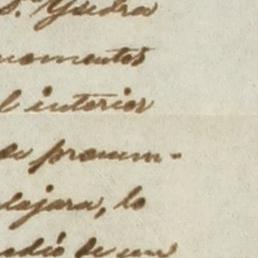 S. Ysidra
momentos
l interior
de pronun-
dalajara, lo
medió de un